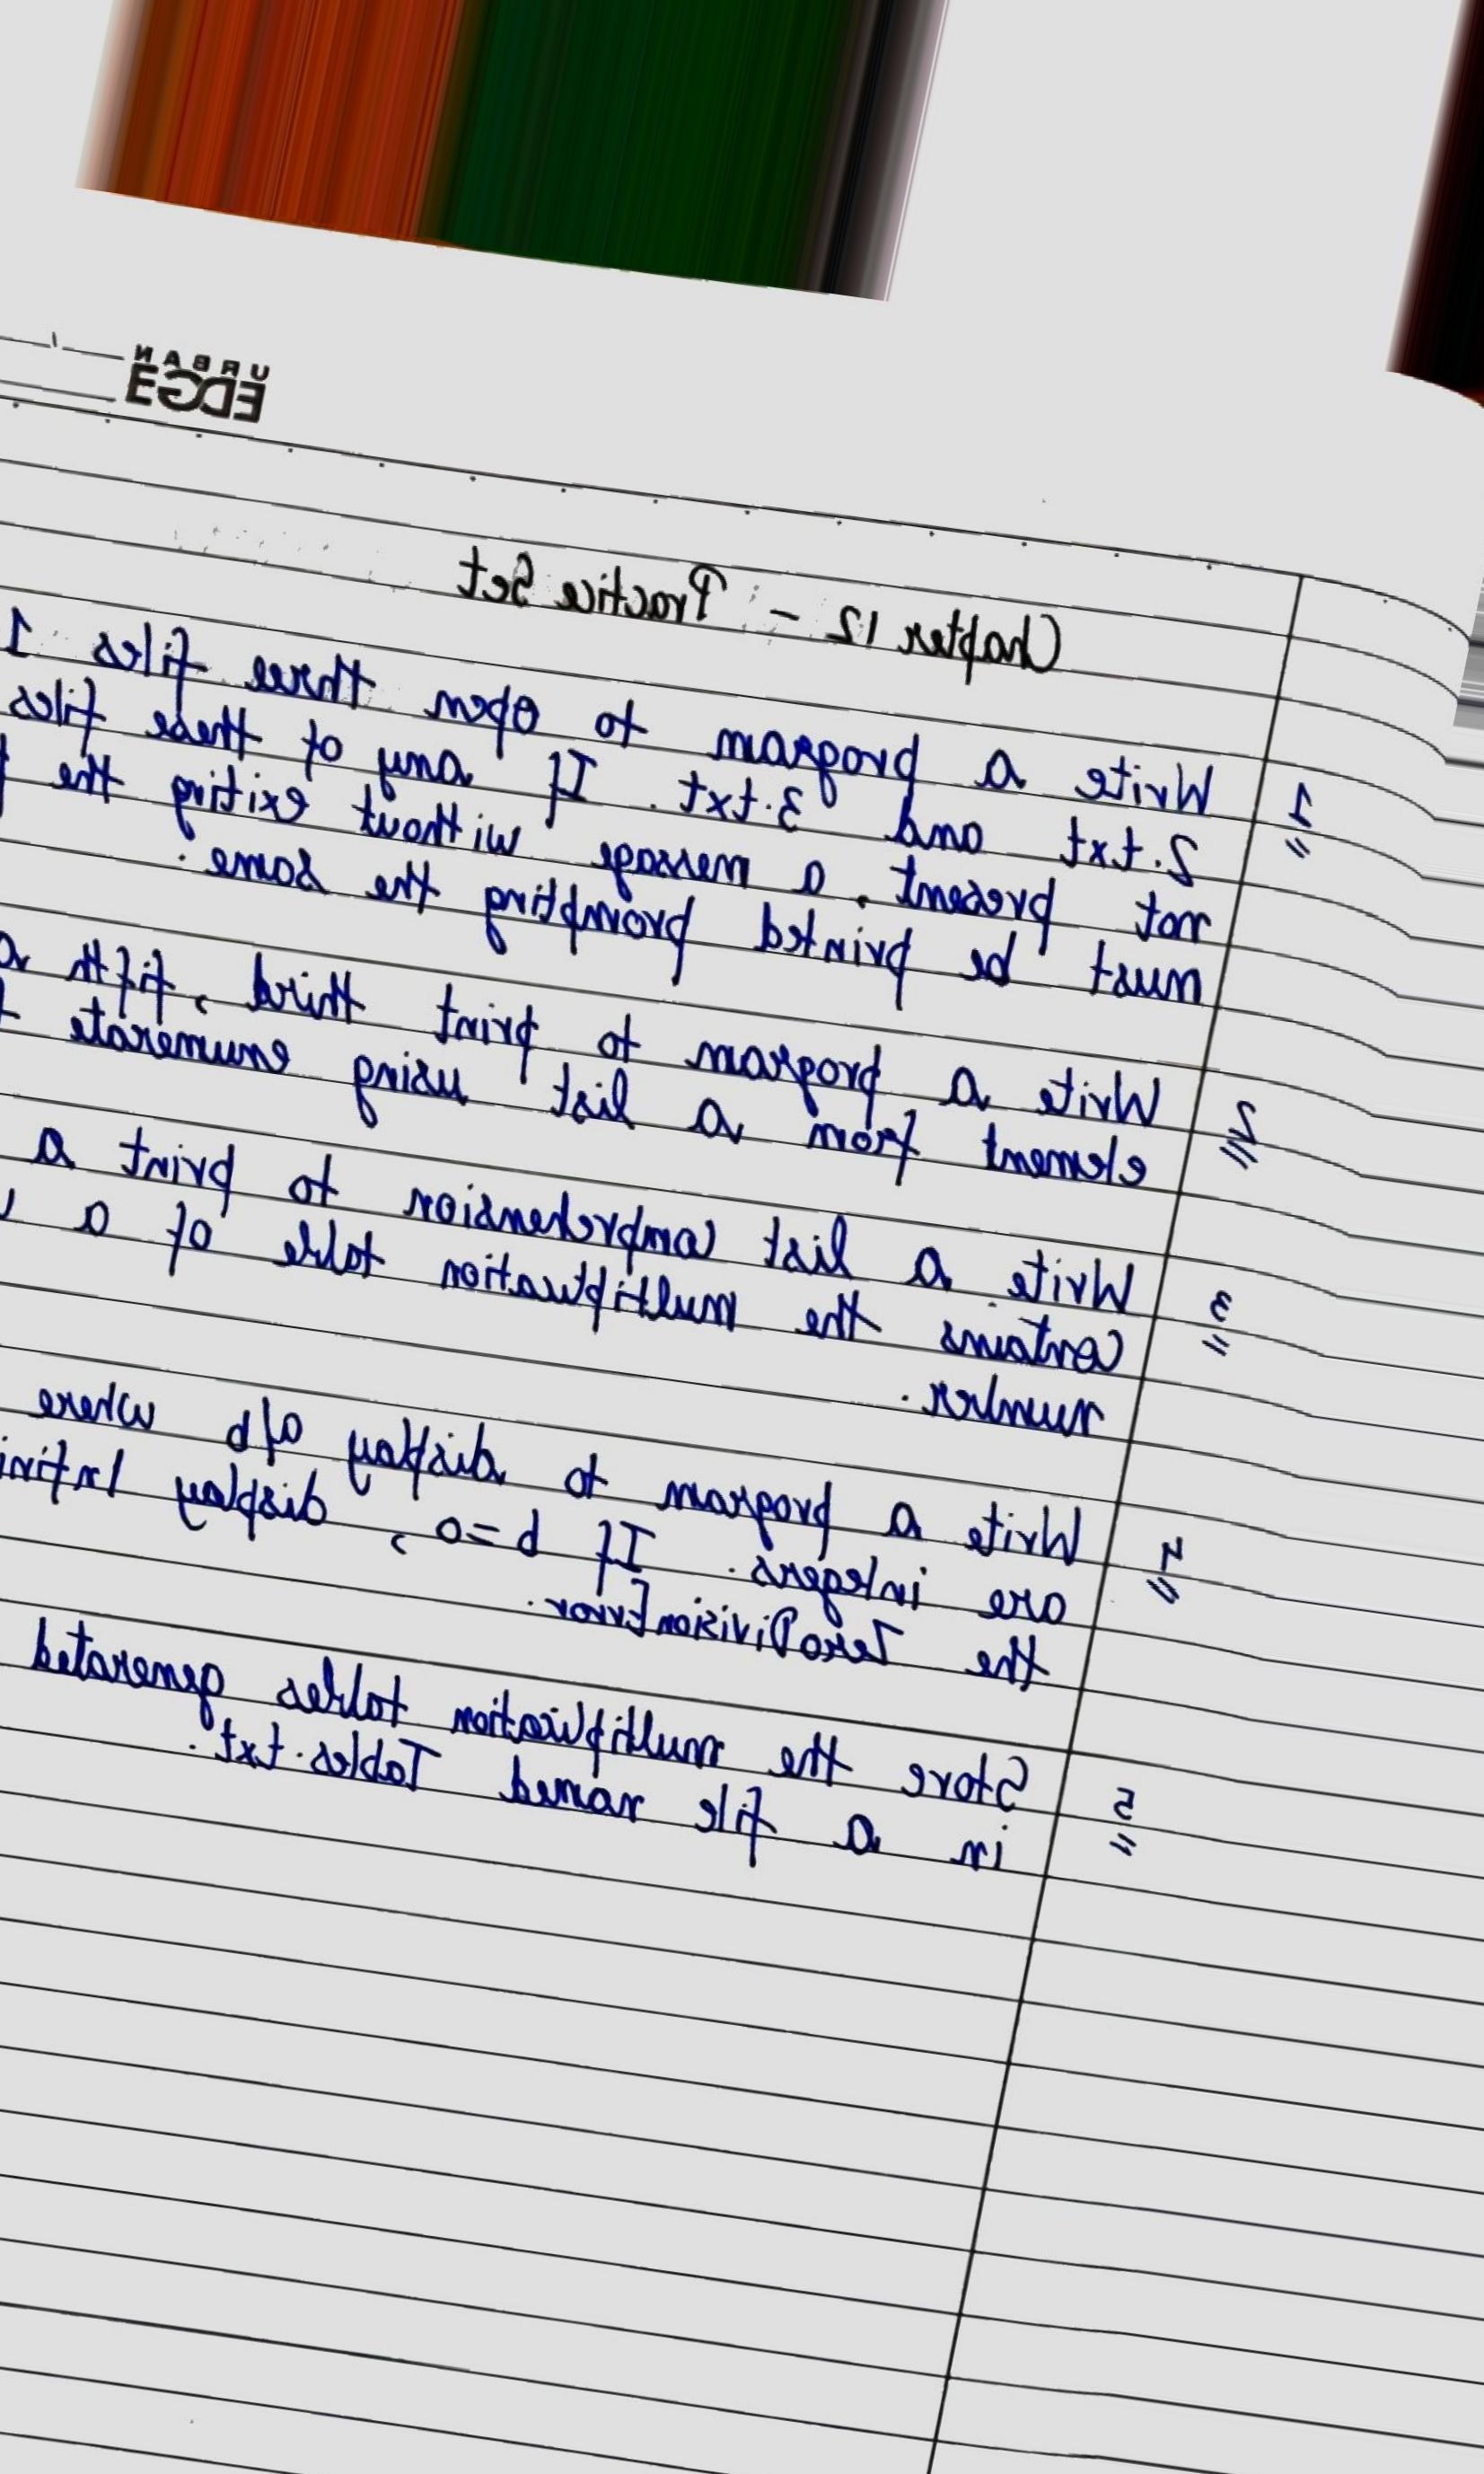 URBAN
EDGE
Chapter 12 - Practice Set
1 Write a program to open three files 1
2.txt and 3.txt. If any of these files
not present, a message without exiting the
must be printed prompting the same.
2 Write a program to print third, fifth a
element from a list using enumerate
3 Write a list comprehension to print a
contains the multiplication table of a
number.
4 Write a program to display a/b where
are integers. If b=0, display Infini
the ZeroDivisionError.
5 Store the multiplication tables generated
in a file named Tables.txt.